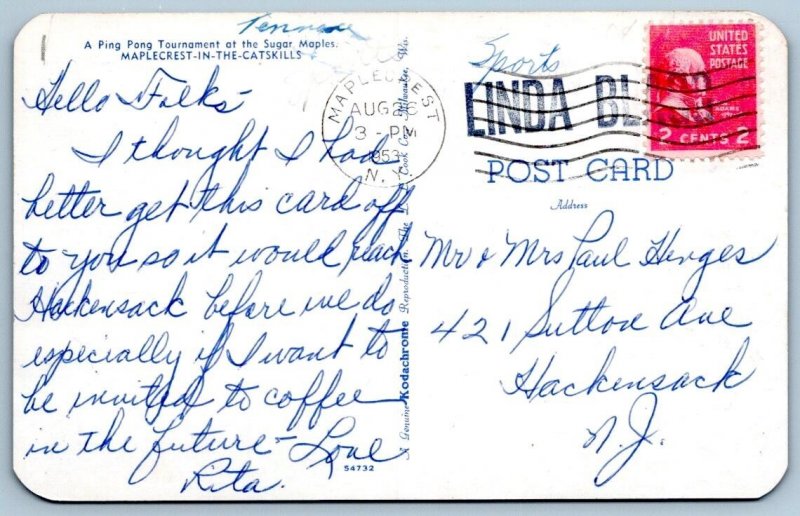 Tennis
A Ping Pong Tournament at the Sugar Maples.
MAPLECREST-IN-THE-CATSKILLS
Hello Folks-
I thought I had
better get this card off
to you so it would reach
Hackensack before we do
especially if I want to
be invited to coffee
in the future - Love
Rita.
54732
A Genuine Kodachrome Reproduction. The Cook Co., Milwaukee, Wis.
MAPLECREST
AUG 26
3 - PM
1953
N. Y.
Sports
LINDA
UNITED
STATES
POSTAGE
ADAMS
2 CENTS 2
POST CARD
Address
Mr & Mrs Paul Henges
421 Sutton Ave
Hackensack
N.J.